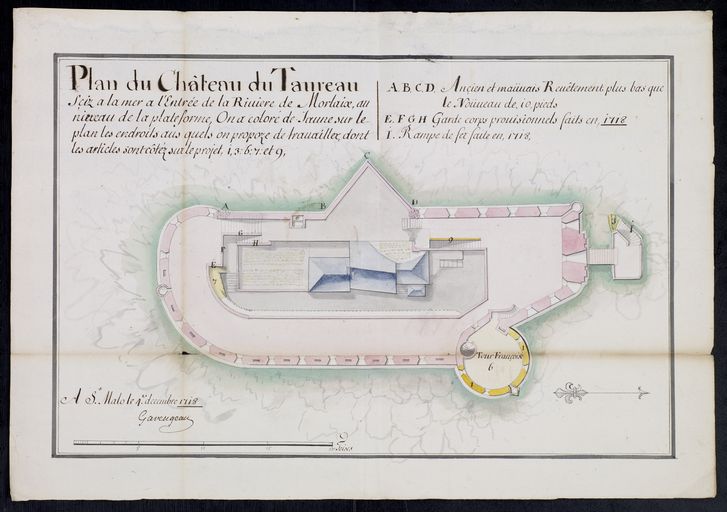 Plan du Château du Taureau
Seiz a la mer a l'Entrée de la Riuiere de Morlaix, au
niueau de la plateforme, On a coloré de Jaune sur le
plan les endroits aus quels on propoze de trauailler, dont
les articles sont côtéz sur le projet, 1, 3, 6, 7, et 9,
A B C D, Ancien et mauuais Reuêtement plus bas que
le Nouueau de, 10, pieds
E, F G H Garde corps prouisionnels faits en, 1718
I, Rampe de fer faite en, 1718,
C
A
B
D
G
H
F
E
7
9
3
I
Tour Françoise
6
1
A St Malo le 4e decembre 1718
Garengeau
5
10
15
Toises